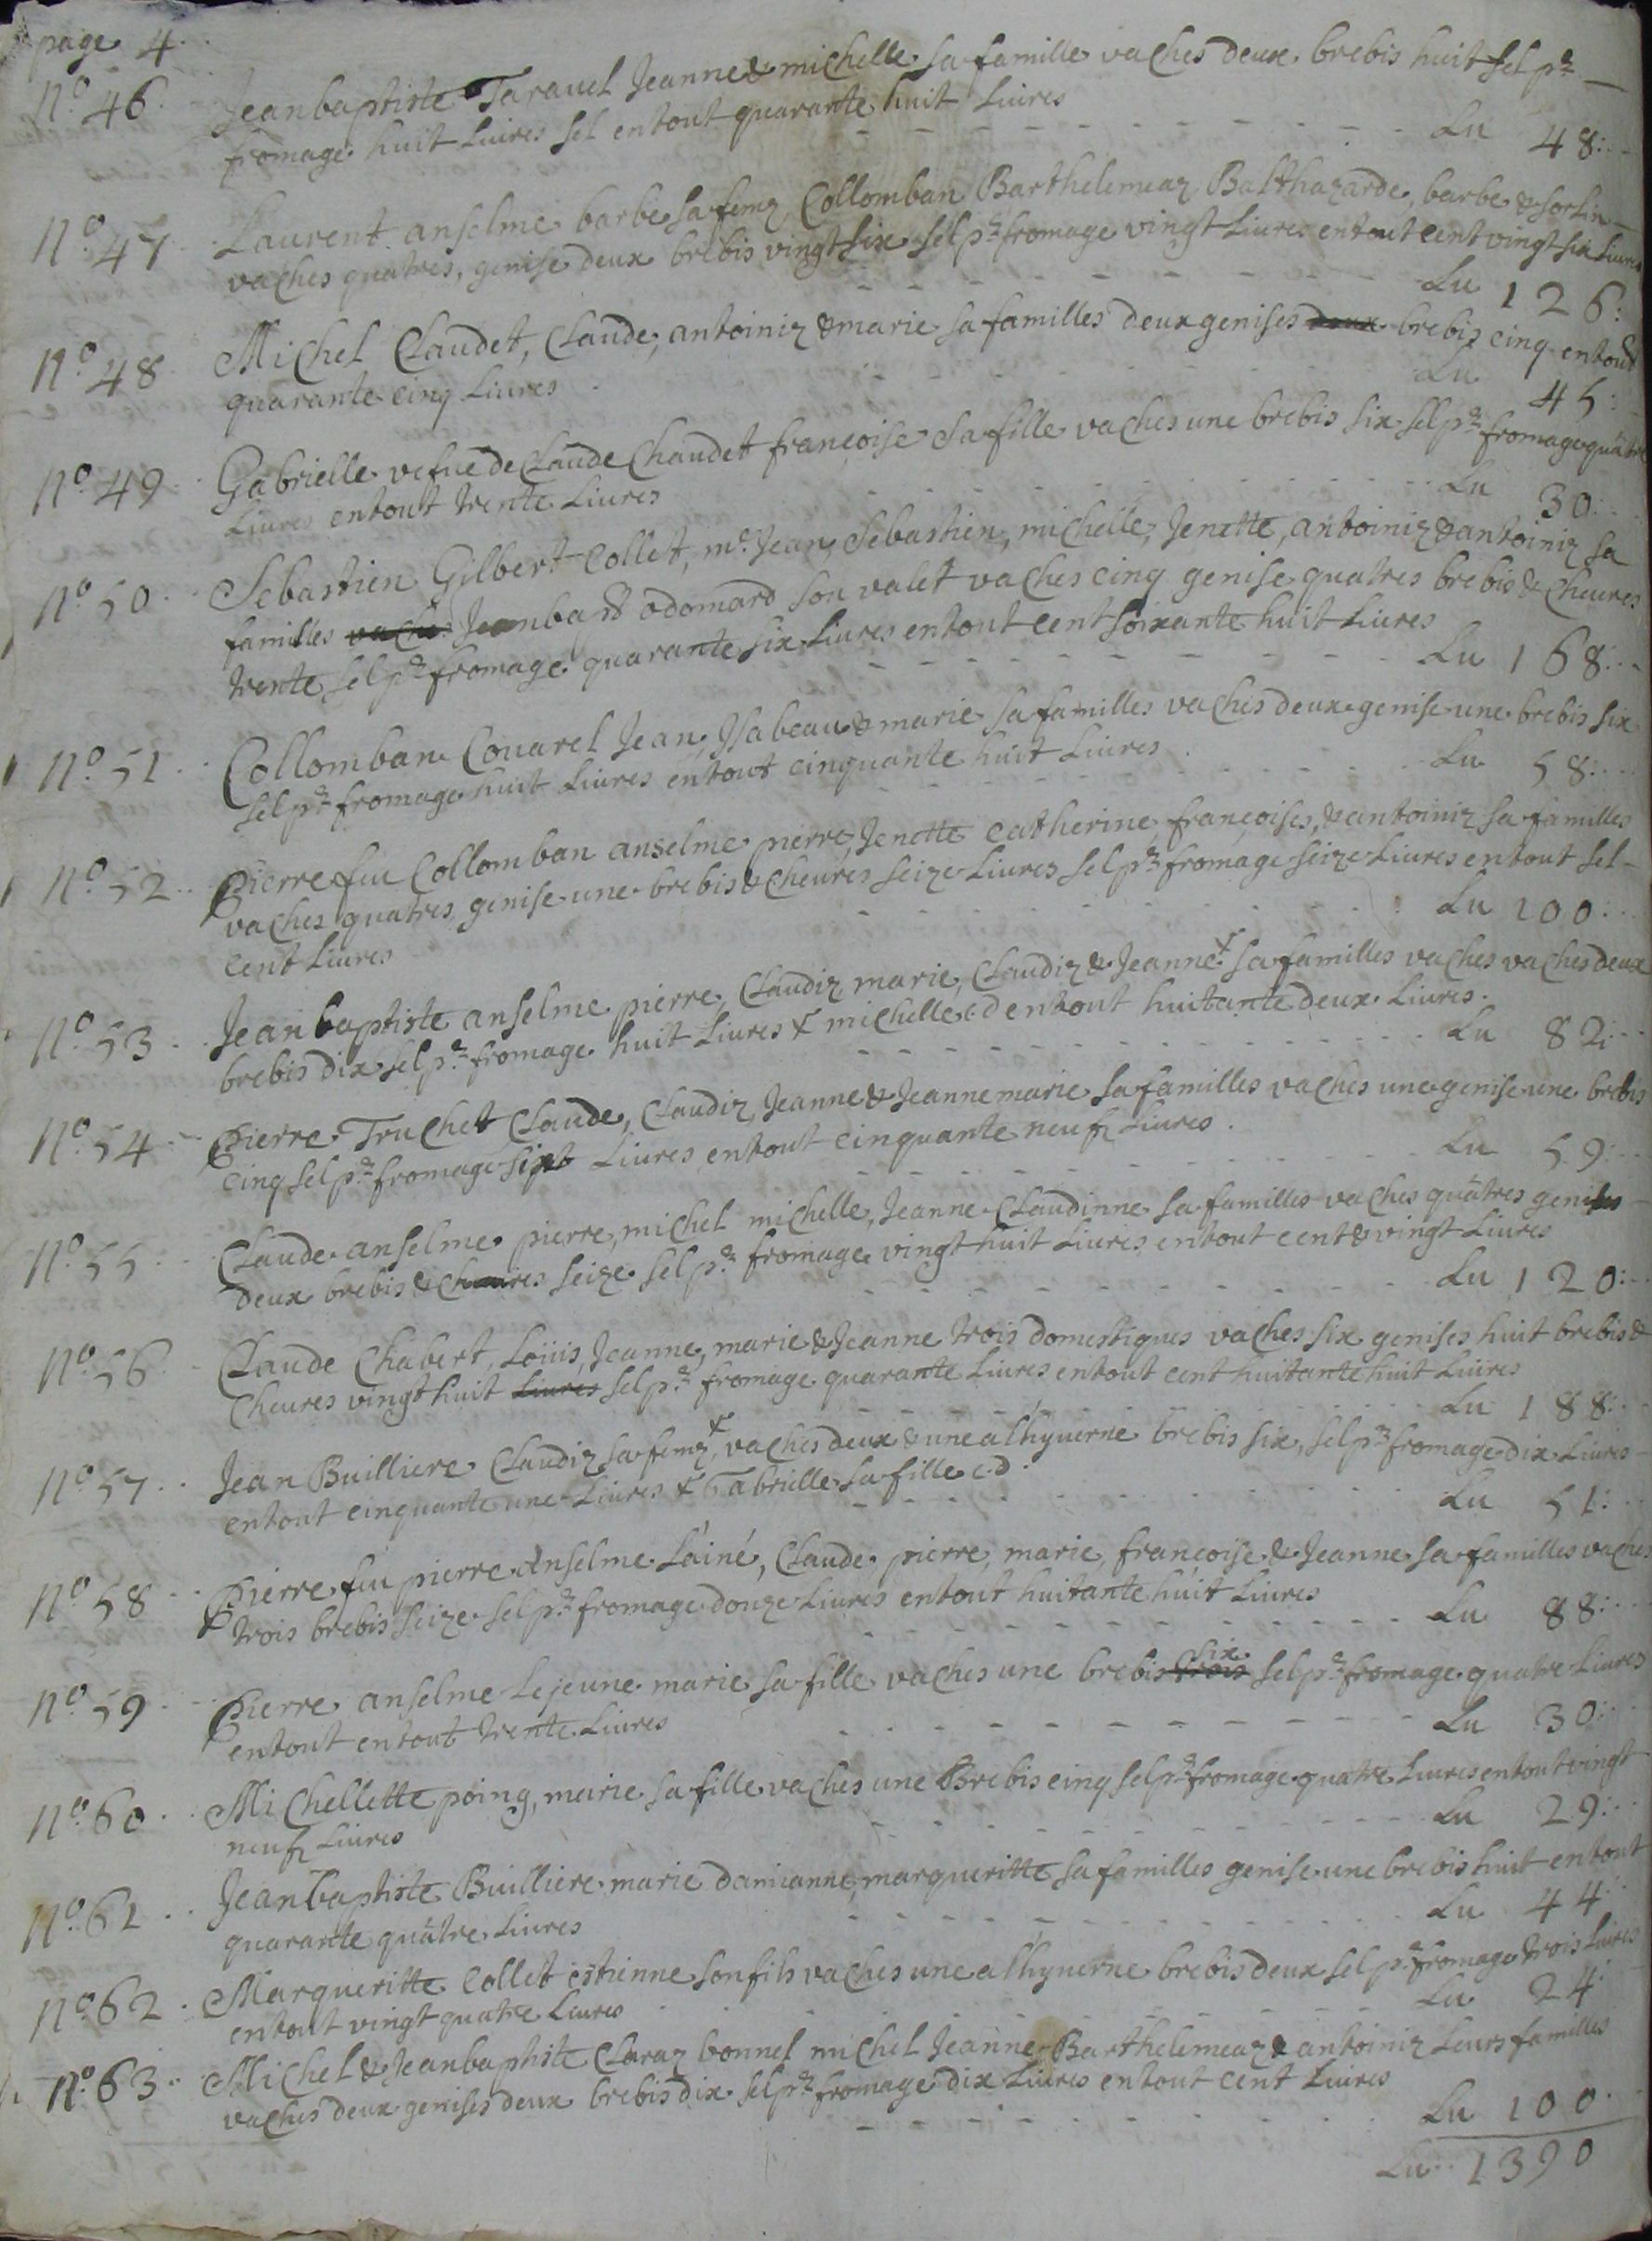 page 4
No. 46. Jeanbaptiste Taravel Jeanne & michelle sa famille vaches deux brebis huit sel pr
fromage huit Liures sel entout quarante huit Liures
Lu 48
No. 47. Laurent anselme barbe sa femz Collomban Barthelemeaz Balthazarde, barbe & sorlin
vaches quatres, genise deux brebis vingt six sel pr fromage vingt Liures entout cent vingt six Liures
Lu 126
No. 48 Michel Claudet, Claude, antoiniz & marie sa familles deux genises deux brebis cinq entout
quarante cinq Liures
Lu 45
No. 49 Gabrielle vefue de Claude Chaudet francoise sa fille vaches une brebis six sel pr fromage quatre
Liures entout trente Liures
Lu 30
No. 50 Sebastien Gilbert Collet, me. Jean, Sebastien, michelle, Jenette, antoiniz & antoiniz sa
familles vache Jeanbatt odomard son valet vaches cinq genise quatres brebis & cheures
trente sel pr fromage quarante six Liures entout cent soixante huit Liures
Lu 168
No. 51 Collomban Couarel Jean, Ysabeau & marie sa familles vaches deux genise une brebis six
sel pr fromage huit Liures entout cinquante huit Liures
Lu 58
No. 52 Pierre feu Collomban anselme pierre, Jenette catherine françoises, & antoiniz sa familles
vaches quatres genise une brebis & cheures seize Liures sel pr fromage seize Liures entout sel
cent Liures
Lu 100
No. 53 Jeanbaptiste anselme pierre, Claudiz marie, Claudiz & Jeanne + sa familles vaches vaches deux
brebis dix sel pr fromage huit Liures + michelle c.d entout huitante deux Liures
Lu 82
No. 54 Pierre Truchet Claude, Claudiz, Jeanne & Jeannemarie sa familles vaches une genise une brebis
cinq sel pr fromage sipt Liures entout cinquante neuf Liures
Lu 59
No. 55 Claude anselme pierre, michel michelle, Jeanne Claudinne sa familles vaches quatres genises
deux brebis & cheures seize sel pr fromage vingt huit Liures entout cent & vingt Liures
Lu 120
No. 56 Claude Chabert, Loüis, Jeanne, marie & Jeanne trois domestiques vaches six genises huit brebis &
cheures vingt huit Liures sel pr fromage quarante Liures entout cent huitante huit Liures
Lu 188
No. 57 Jean Builliere Claudiz sa femz + vaches deux & une a l'hyuerne brebis six, sel pr fromage dix Liures
entout cinquante une Liures + Gabrielle sa fille c.d
Lu 51
No. 58 Pierre feu pierre Anselme L'ainé, Claude, pierre, marie, francoise & Jeanne sa familles vaches
trois brebis seize sel pr fromage douze Liures entout huitante huit Liures
Lu 88
No. 59 Pierre anselme Lejeune marie sa fille vaches une brebis trois six sel pr fromage quatre Liures
entout entout trente Liures
Lu 30
No. 60 Michellette poing, marie sa fille vaches une Brebis cinq sel pr fromage quatre Liures entout vingt
neuf Liures
Lu 29
No. 61 Jeanbaptiste Builliere marie damianne, margueritte sa familles genise une brebis huit entout
quarante quatre Liures
Lu 44
No. 62 Margueritte Collet estienne son fils vaches une a l'hyuerne brebis deux sel pr fromage trois Liures
entout vingt quatre Liures
Lu 24
No. 63 Michel & Jeanbaptiste Claraz bonnel michel Jeanne Barthelemeaz & antoiniz Leurs familles
vaches deux genises deux brebis dix sel pr fromage dix Liures entout cent Liures
Lu 100
Lu 1390